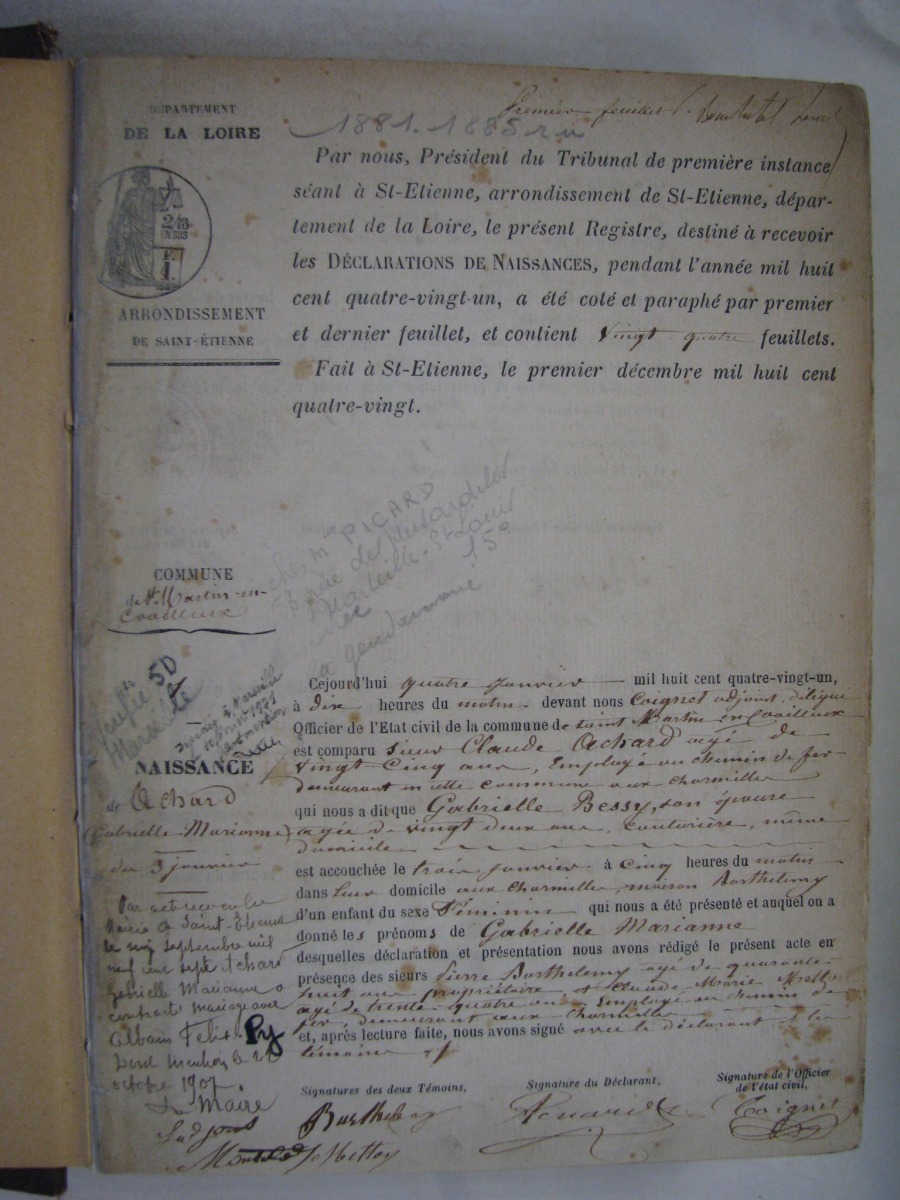 DÉPARTEMENT
DE LA LOIRE
2/10
EN SUS
F.
1.
ARRONDISSEMENT
DE SAINT-ÉTIENNE
Premier feuillet
1881. 1885
Par nous, Président du Tribunal de première instance
séant à St-Etienne, arrondissement de St-Etienne, dépar-
tement de la Loire, le présent Registre, destiné à recevoir
les DÉCLARATIONS DE NAISSANCES, pendant l'année mil huit
cent quatre-vingt-un, a été coté et paraphé par premier
et dernier feuillet, et contient Vingt-quatre feuillets.
Fait à St-Etienne, le premier décembre mil huit cent
quatre-vingt.
chez M PICARD
Marseille-St Louis
15e
la gendarmerie
COMMUNE
de St Martin-en-
Coailleux
50
Marseille
1
NAISSANCE
de Achard
Gabrielle-Marianne
du 3 janvier
Par acte reçu à la
Mairie de Saint-Etienne
le septembre mil
neuf cent sept Achard
Gabrielle Marianne a
contracté mariage avec
Albain Félix Py
Dont mention le 21
octobre 1907.
Le Maire
Cejourd'hui quatre janvier mil huit cent quatre-vingt-un,
à dix heures du matin devant nous Coignet adjoint délégué
Officier de l'Etat civil de la commune de Saint Martin en Coailleux
est comparu Sieur Claude Achard âgé de
vingt-cinq ans, Employé au chemin de fer
demeurant en cette commune aux charmilles
qui nous a dit que Gabrielle Bessy, son épouse
âgée de vingt deux ans, couturière, même
domicile
est accouchée le trois janvier à cinq heures du matin
dans leur domicile aux charmilles, maison Barthelemy
d'un enfant du sexe Féminin qui nous a été présenté et auquel on a
donné les prénoms de Gabrielle Marianne
desquelles déclaration et présentation nous avons rédigé le présent acte en
présence des sieurs Pierre Barthelemy âgé de quarante
huit ans propriétaire et Claude Marie
âgé de trente-quatre ans Employé au chemin de
fer, demeurant aux charmilles
et, après lecture faite, nous avons signé avec le déclarant et les
témoins
Signatures des deux Témoins,
Signature du Déclarant,
Signature de l'Officier
de l'état civil,
Barthelemy
Coignet